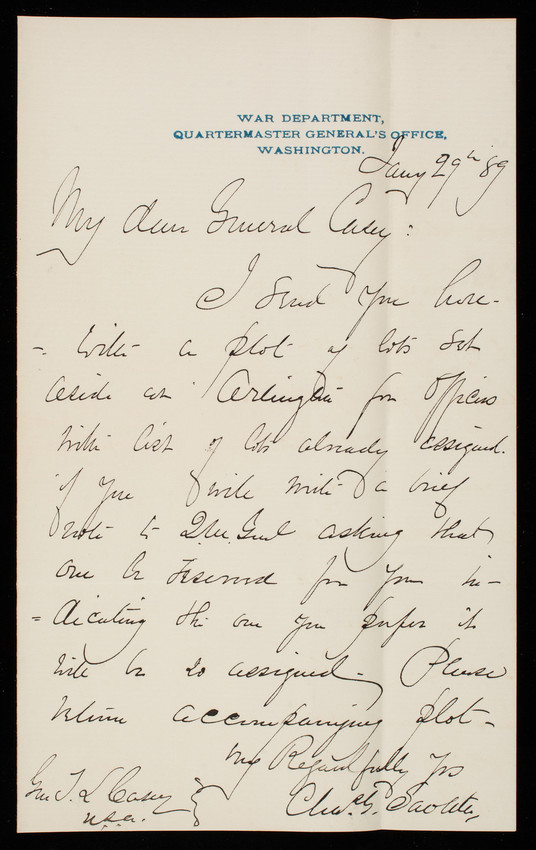 WAR DEPARTMENT,
QUARTERMASTER GENERAL'S OFFICE,
WASHINGTON.
Jany 29th 89
My dear General Casey:
I send you here-
= with a plot of lots set
aside at Arlington for Officers
with list of lots already assigned.
if you will write a brief
note to Q.M. Genl asking that
one be reserved for you in-
= dicating the one you prefer it
will be so assigned - Please
return accompanying plot -
Very Respectfully Yrs
Gen T. L. Casey
U.S.A.